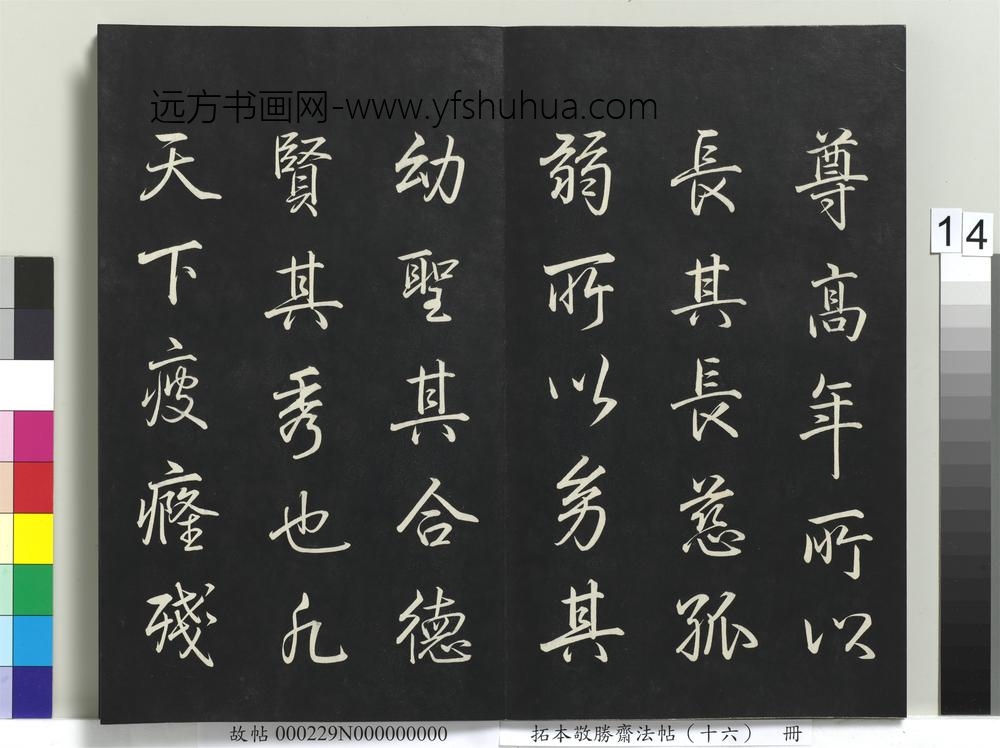 远方书画网-www.yfshuhua.com
尊高年所以
長其長慈孤
弱所以㓜其
幼聖其合德
賢其秀也凡
天下疲癃殘
14
故帖 000229N000000000
拓本敬勝齋法帖（十六） 冊